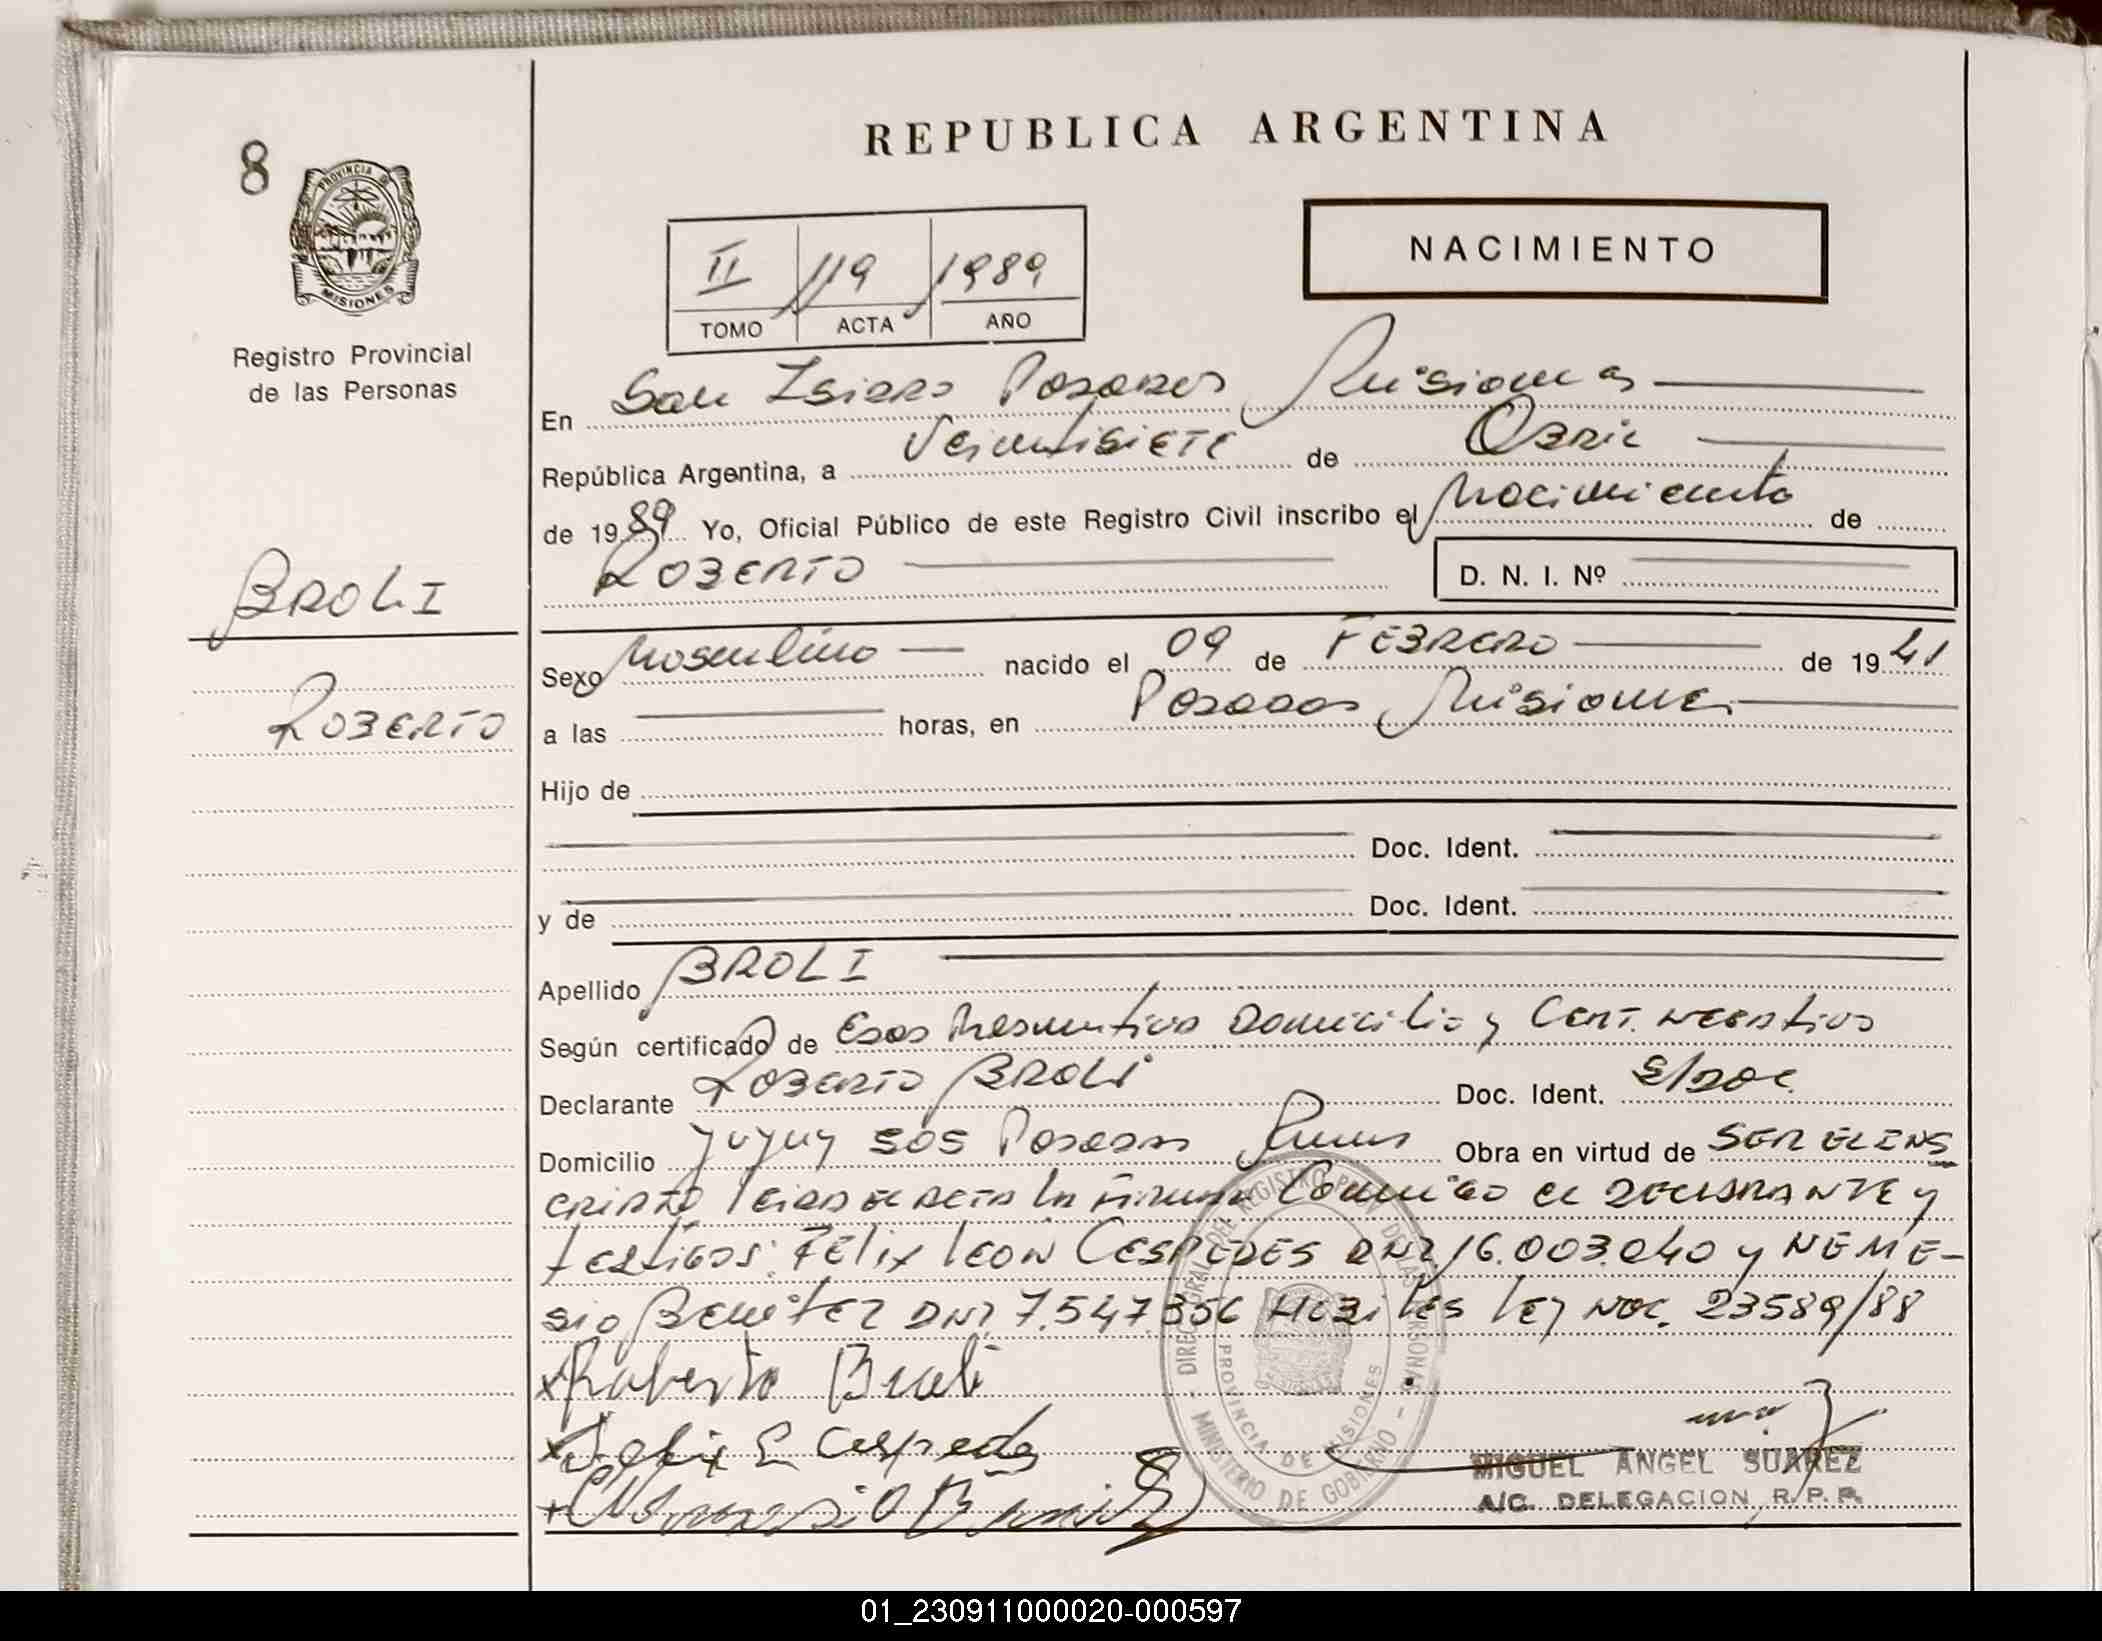 REPUBLICA ARGENTINA
8
PROVINCIA DE
MISIONES
Registro Provincial
de las Personas
II 119 1989
TOMO ACTA AÑO
NACIMIENTO
En San Isidro Posadas Misiones
República Argentina, a Veintisiete de Abril
de 1989 Yo, Oficial Público de este Registro Civil inscribo el Nacimiento de
ROBERTO D. N. I. Nº
BROLI
ROBERTO
Sexo Masculino nacido el 09 de FEBRERO de 1941
a las horas, en Posadas Misiones
Hijo de
Doc. Ident.
y de Doc. Ident.
Apellido BROLI
Según certificado de Edad Presuntiva Domicilio y Cert. negativo
Declarante ROBERTO BROLI Doc. Ident. S/DOC.
Domicilio Jujuy 505 Posadas Obra en virtud de SER EL INS
CRIPTO leida el acta la firman Conmigo el DECLARANTE y
testigos: Felix Leon CESPEDES DNI. 16.003.040 y NEME-
sio Benitez DNI. 7.547.356 Habiles ley NAC. 23589/88
x Roberto Broli
x Felix L Cespedes
+ Nemesio Benitez
DIREC. GRAL. DEL REGISTRO PROV. DE LAS PERSONAS
MINISTERIO DE GOBIERNO
PROVINCIA DE MISIONES
MIGUEL ANGEL SUAREZ
A/C. DELEGACION R. P. P.
01_230911000020-000597